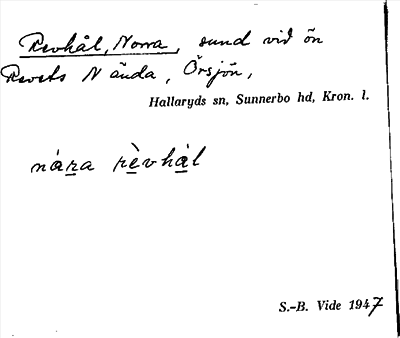 Revhål, Norra, sund vid ön
Revets N ända, Örsjön,
Hallaryds sn, Sunnerbo hd, Kron. l.
nára rèvhål
S.-B. Vide 1947